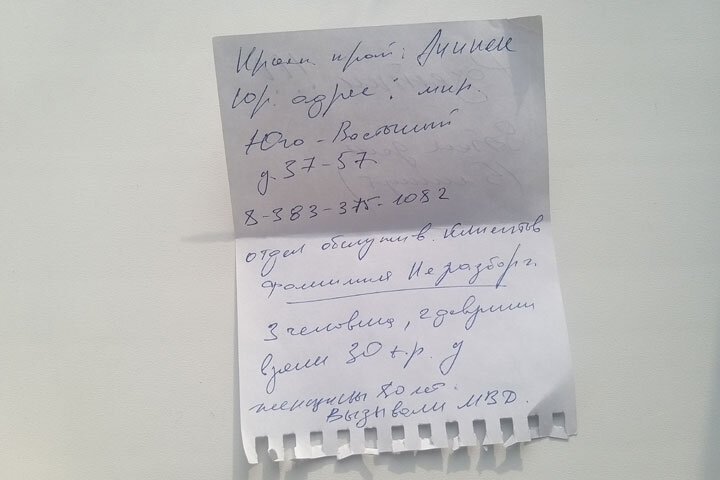 Красн край: Ачинск
Юр. адрес: мкр.
Юго-Восточный
д. 37-57
8-383-375-1082
отдел обслужив. клиентов
фамилия Неразборч.
3 человека, 2 девушки
взяли 30 т.р. у
женщины 80 лет.
Вызывали МВД.